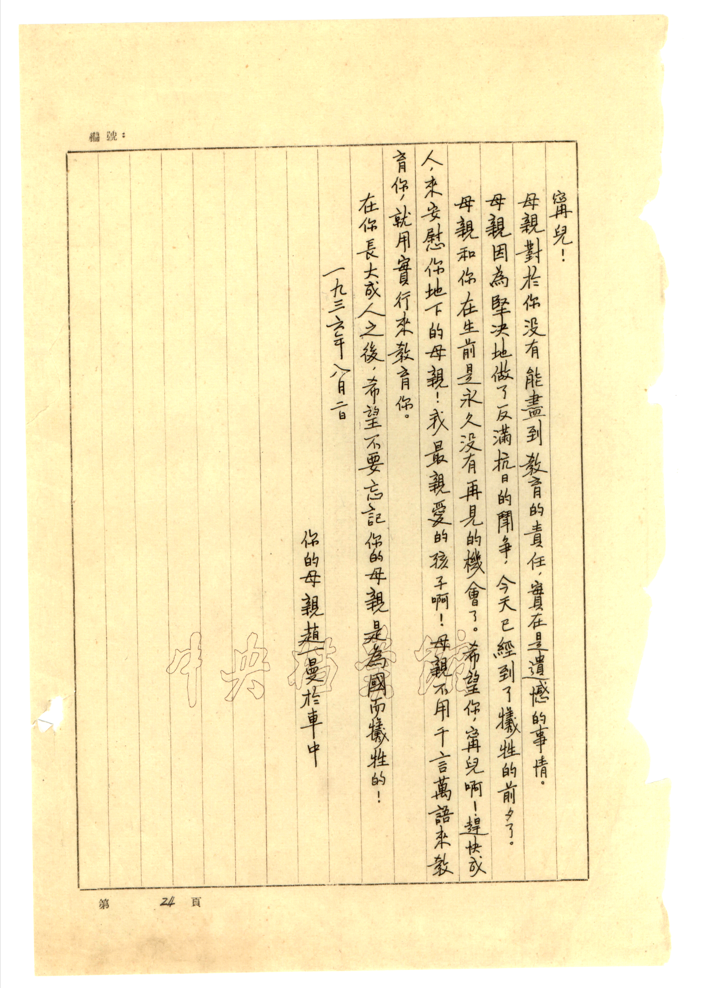 編號：
寗兒！
母親對於你没有能盡到教育的責任，實在是遺憾的事情。
母親因為堅决地做了反滿抗日的鬥争，今天已經到了犧牲的前夕了。
母親和你在生前是永久没有再見的機會了。希望你，寗兒啊！趕快成
人，來安慰你地下的母親！我最親愛的孩子啊！母親不用千言萬語來教
育你，就用實行來教育你。
在你長大成人之後，希望不要忘記你的母親是為國而犧牲的！
一九三六年八月二日
你的母親趙一曼於車中
中央檔案館
第 24 頁